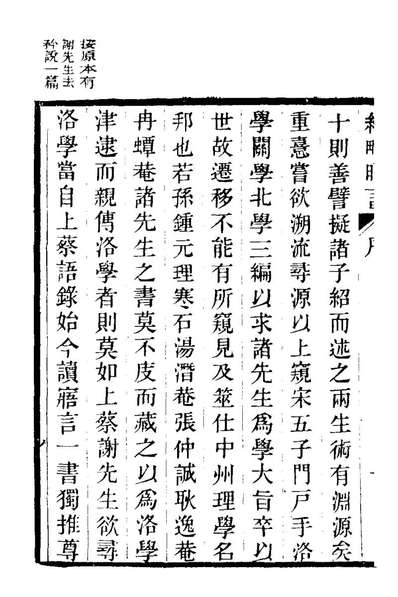 十則善譬擬諸子紹而述之兩生術有淵源矣
重憙嘗欲溯流尋源以上窺宋五子門戶手洛
學關學北學三編以求諸先生爲學大旨卒以
世故遷移不能有所窺見及筮仕中州理學名
邦也若孫鍾元理寒石湯潛菴張仲誠耿逸菴
冉蟫菴諸先生之書莫不庋而藏之以爲洛學
津逮而親傳洛學者則莫如上蔡謝先生欲尋
洛學當自上蔡語錄始今讀寤言一書獨推尊
按原本有
謝先生去
矜說一篇